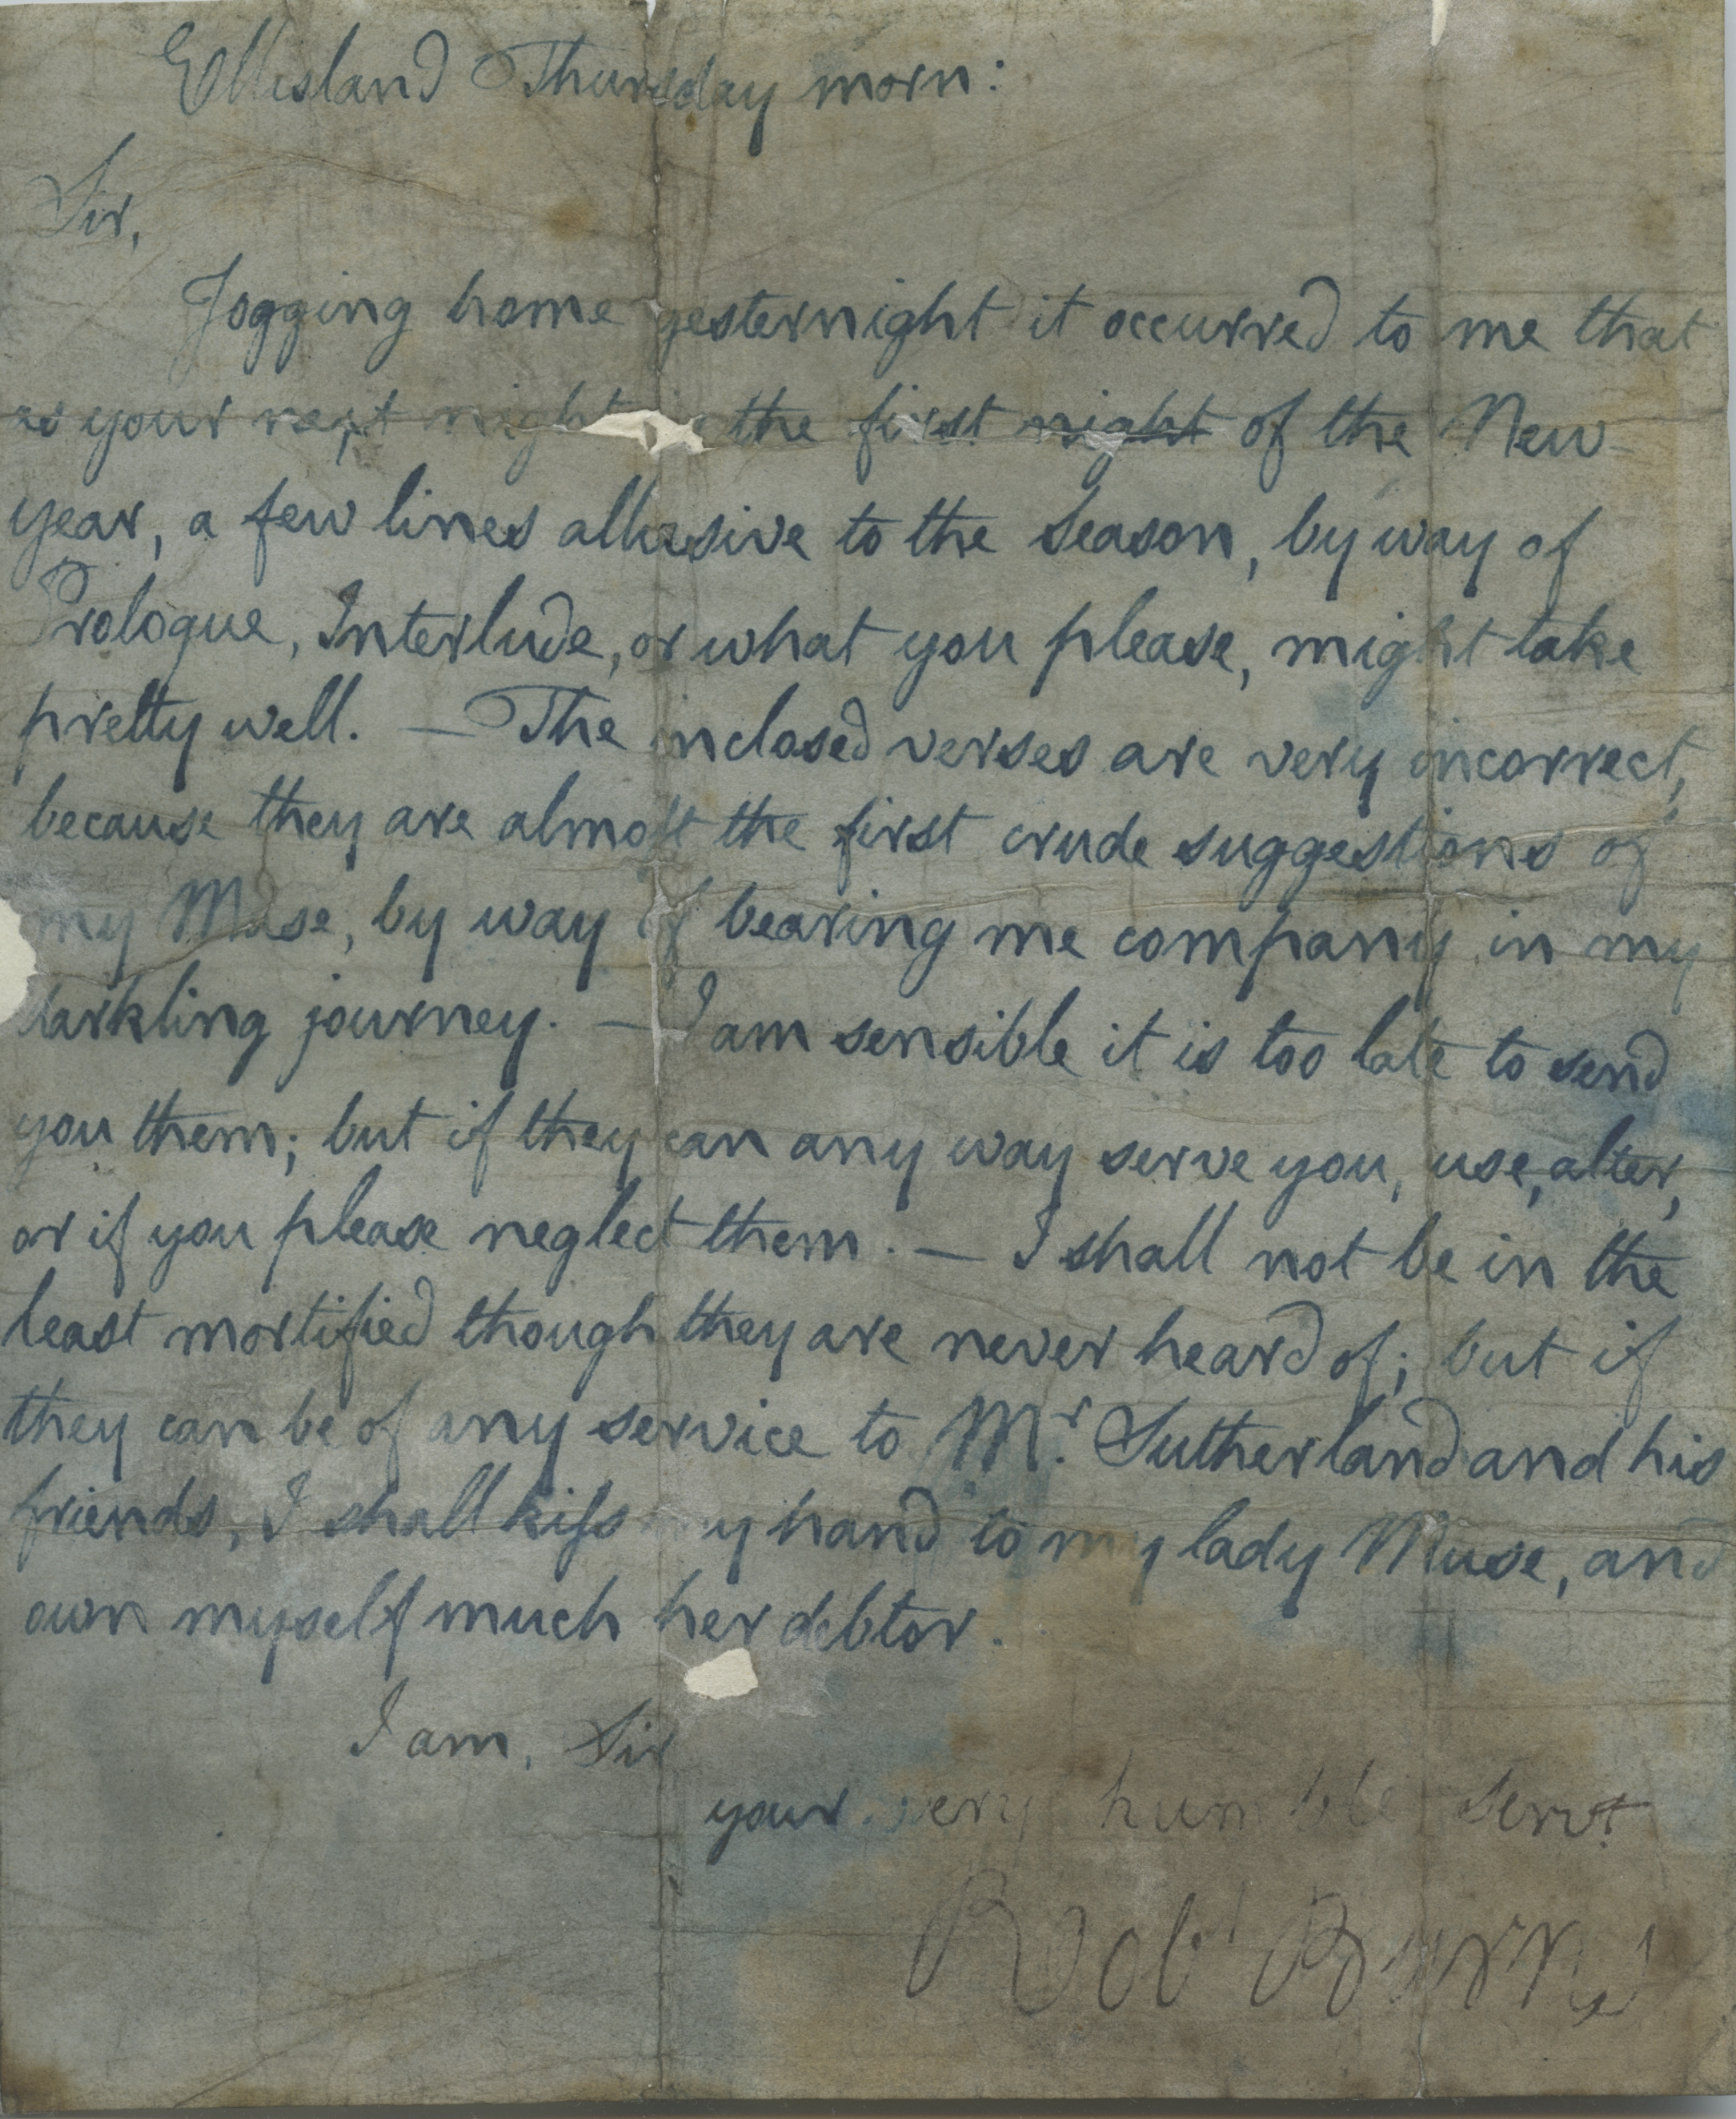 Ellisland Thursday morn:
Sir,
Jogging home yesternight it occurred to me that
as your next night the first night of the New-
year, a few lines allusive to the Season, by way of
Prologue, Interlude, or what you please, might take
pretty well. — The inclosed verses are very incorrect,
because they are almost the first crude suggestions of
my Muse, by way of bearing me company in my
darkling journey. — I am sensible it is too late to send
you them; but if they can any way serve you, use, alter,
or if you please neglect them. — I shall not be in the
least mortified though they are never heard of; but if
they can be of any service to Mr. Sutherland and his
friends, I shall kiss my hand to my lady Muse, and
own myself much her debtor.
I am, Sir
your very humble servt
Robt Burns